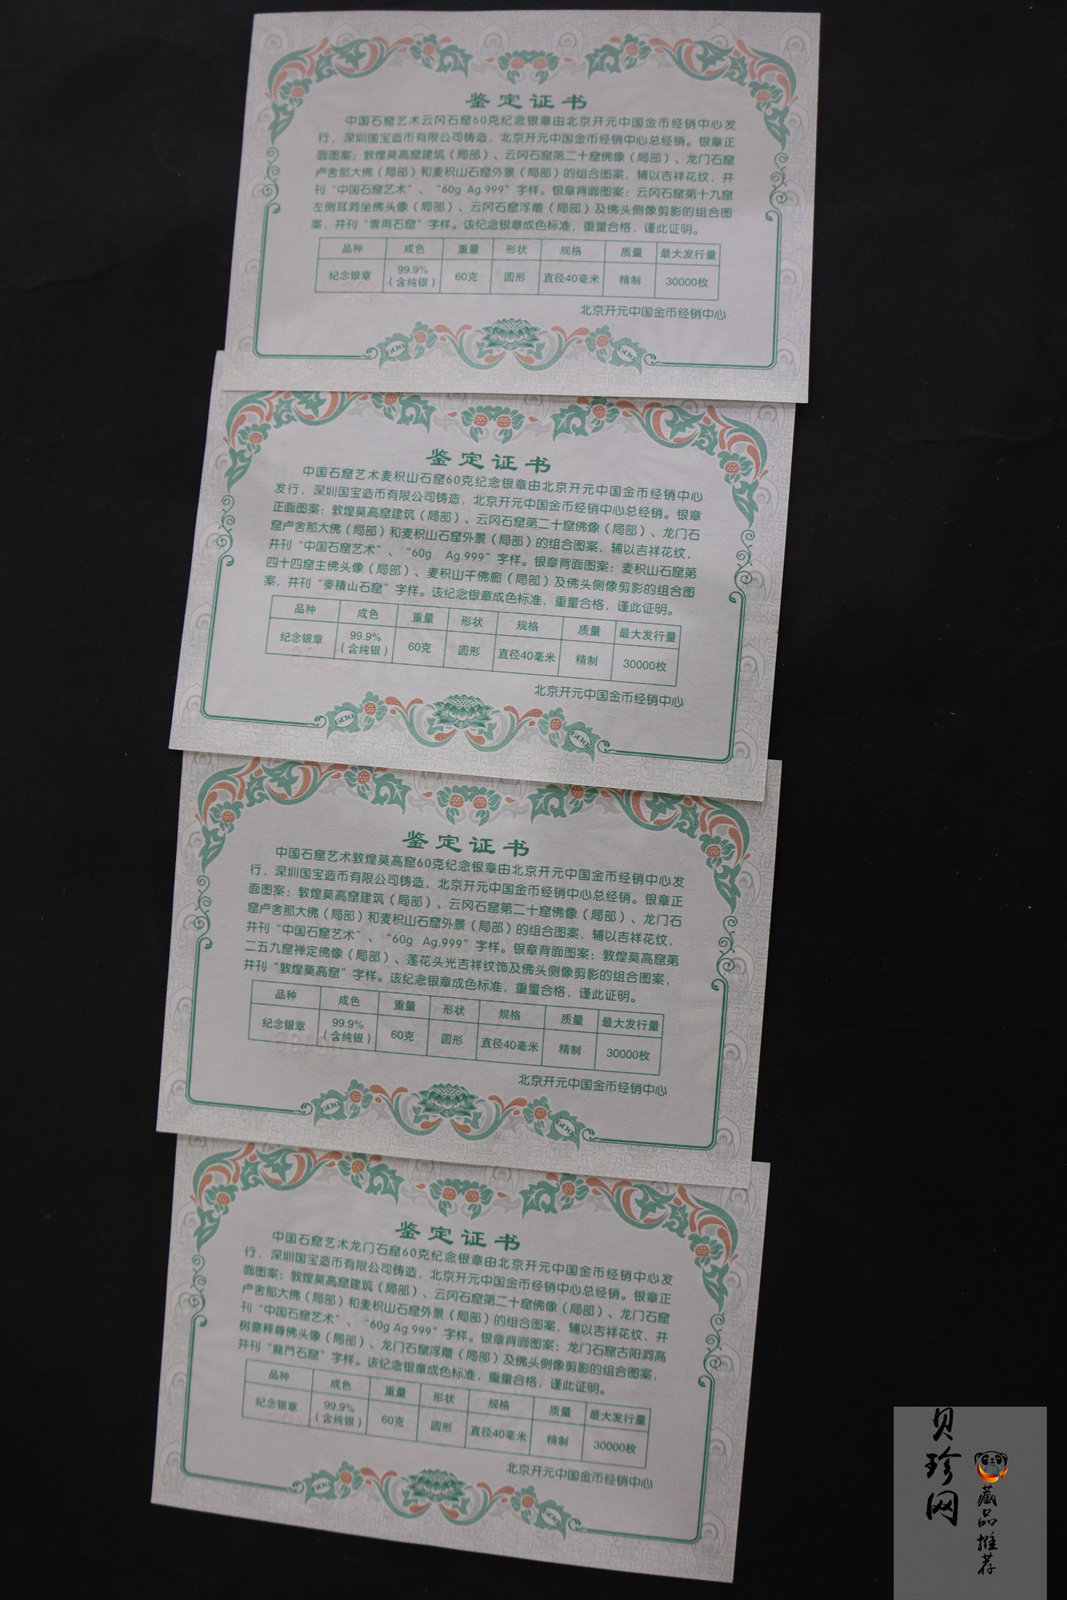 鉴定证书
中国石窟艺术云冈石窟60克纪念银章由北京开元中国金币经销中心发
行，深圳国宝造币有限公司铸造，北京开元中国金币经销中心总经销。银章正
面图案：敦煌莫高窟建筑（局部）、云冈石窟第二十窟佛像（局部）、龙门石窟
卢舍那大佛（局部）和麦积山石窟外景（局部）的组合图案，辅以吉祥花纹，并
刊“中国石窟艺术”、“60g Ag.999”字样。银章背面图案：云冈石窟第十九窟
左侧耳洞坐佛头像（局部）、云冈石窟浮雕（局部）及佛头侧像剪影的组合图
案，并刊“雲岡石窟”字样。该纪念银章成色标准，重量合格，谨此证明。
品种 成色 重量 形状 规格 质量 最大发行量
纪念银章 99.9%（含纯银） 60克 圆形 直径40毫米 精制 30000枚
北京开元中国金币经销中心
60g 60g
鉴定证书
中国石窟艺术麦积山石窟60克纪念银章由北京开元中国金币经销中心
发行，深圳国宝造币有限公司铸造，北京开元中国金币经销中心总经销。银章
正面图案：敦煌莫高窟建筑（局部）、云冈石窟第二十窟佛像（局部）、龙门石
窟卢舍那大佛（局部）和麦积山石窟外景（局部）的组合图案，辅以吉祥花纹，
并刊“中国石窟艺术”、“60g Ag.999”字样。银章背面图案：麦积山石窟第
四十四窟主佛头像（局部）、麦积山千佛廊（局部）及佛头侧像剪影的组合图
案，并刊“麥積山石窟”字样。该纪念银章成色标准，重量合格，谨此证明。
品种 成色 重量 形状 规格 质量 最大发行量
纪念银章 99.9%（含纯银） 60克 圆形 直径40毫米 精制 30000枚
北京开元中国金币经销中心
60g 60g
鉴定证书
中国石窟艺术敦煌莫高窟60克纪念银章由北京开元中国金币经销中心发
行，深圳国宝造币有限公司铸造，北京开元中国金币经销中心总经销。银章正
面图案：敦煌莫高窟建筑（局部）、云冈石窟第二十窟佛像（局部）、龙门石
窟卢舍那大佛（局部）和麦积山石窟外景（局部）的组合图案，辅以吉祥花纹，
并刊“中国石窟艺术”、“60g Ag.999”字样。银章背面图案：敦煌莫高窟第
二五九窟禅定佛像（局部）、莲花头光吉祥纹饰及佛头侧像剪影的组合图案，
并刊“敦煌莫高窟”字样。该纪念银章成色标准，重量合格，谨此证明。
品种 成色 重量 形状 规格 质量 最大发行量
纪念银章 99.9%（含纯银） 60克 圆形 直径40毫米 精制 30000枚
北京开元中国金币经销中心
60g 60g
鉴定证书
中国石窟艺术龙门石窟60克纪念银章由北京开元中国金币经销中心发
行，深圳国宝造币有限公司铸造，北京开元中国金币经销中心总经销。银章正
面图案：敦煌莫高窟建筑（局部）、云冈石窟第二十窟佛像（局部）、龙门石窟
卢舍那大佛（局部）和麦积山石窟外景（局部）的组合图案，辅以吉祥花纹，并
刊“中国石窟艺术”、“60g Ag.999”字样。银章背面图案：龙门石窟古阳洞高
树龛释尊佛头像（局部）、龙门石窟浮雕（局部）及佛头侧像剪影的组合图案，
并刊“龍門石窟”字样。该纪念银章成色标准，重量合格，谨此证明。
品种 成色 重量 形状 规格 质量 最大发行量
纪念银章 99.9%（含纯银） 60克 圆形 直径40毫米 精制 30000枚
北京开元中国金币经销中心
60g 60g
贝珍网
藏品推荐